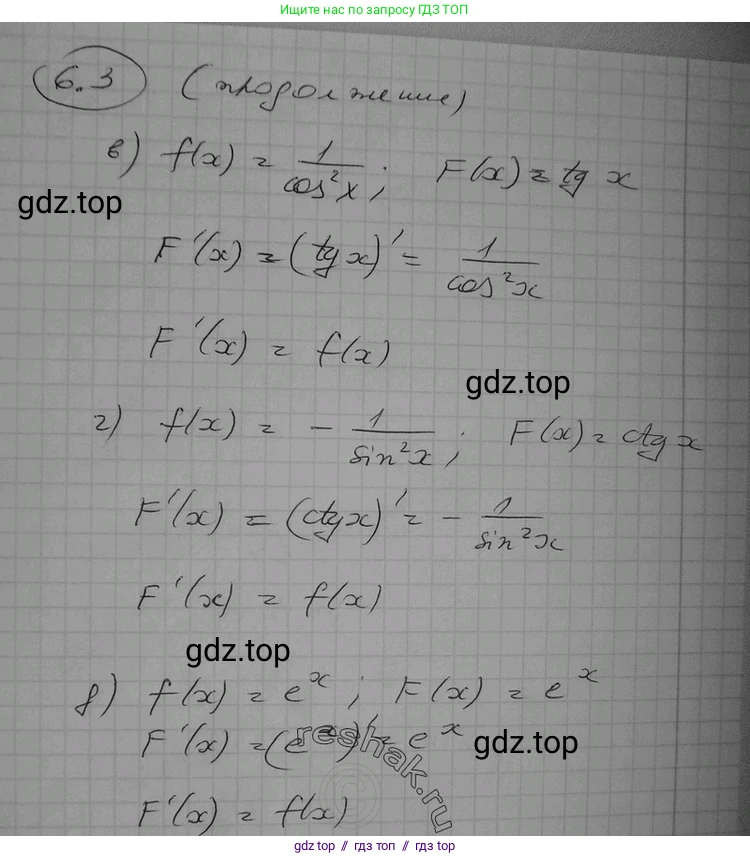 Ищите нас по запросу ГДЗ ТОП
6.3 (продолжение)
в) f(x) = 1/cos²x; F(x) = tg x
gdz.top
F'(x) = (tg x)' = 1/cos²x
F'(x) = f(x)
gdz.top
г) f(x) = - 1/sin²x; F(x) = ctg x
F'(x) = (ctg x)' = - 1/sin²x
F'(x) = f(x)
gdz.top
д) f(x) = e^x; F(x) = e^x
F'(x) = (e^x)' = e^x
gdz.top
reshak.ru
F'(x) = f(x)
gdz top // гдз топ // гдз.топ